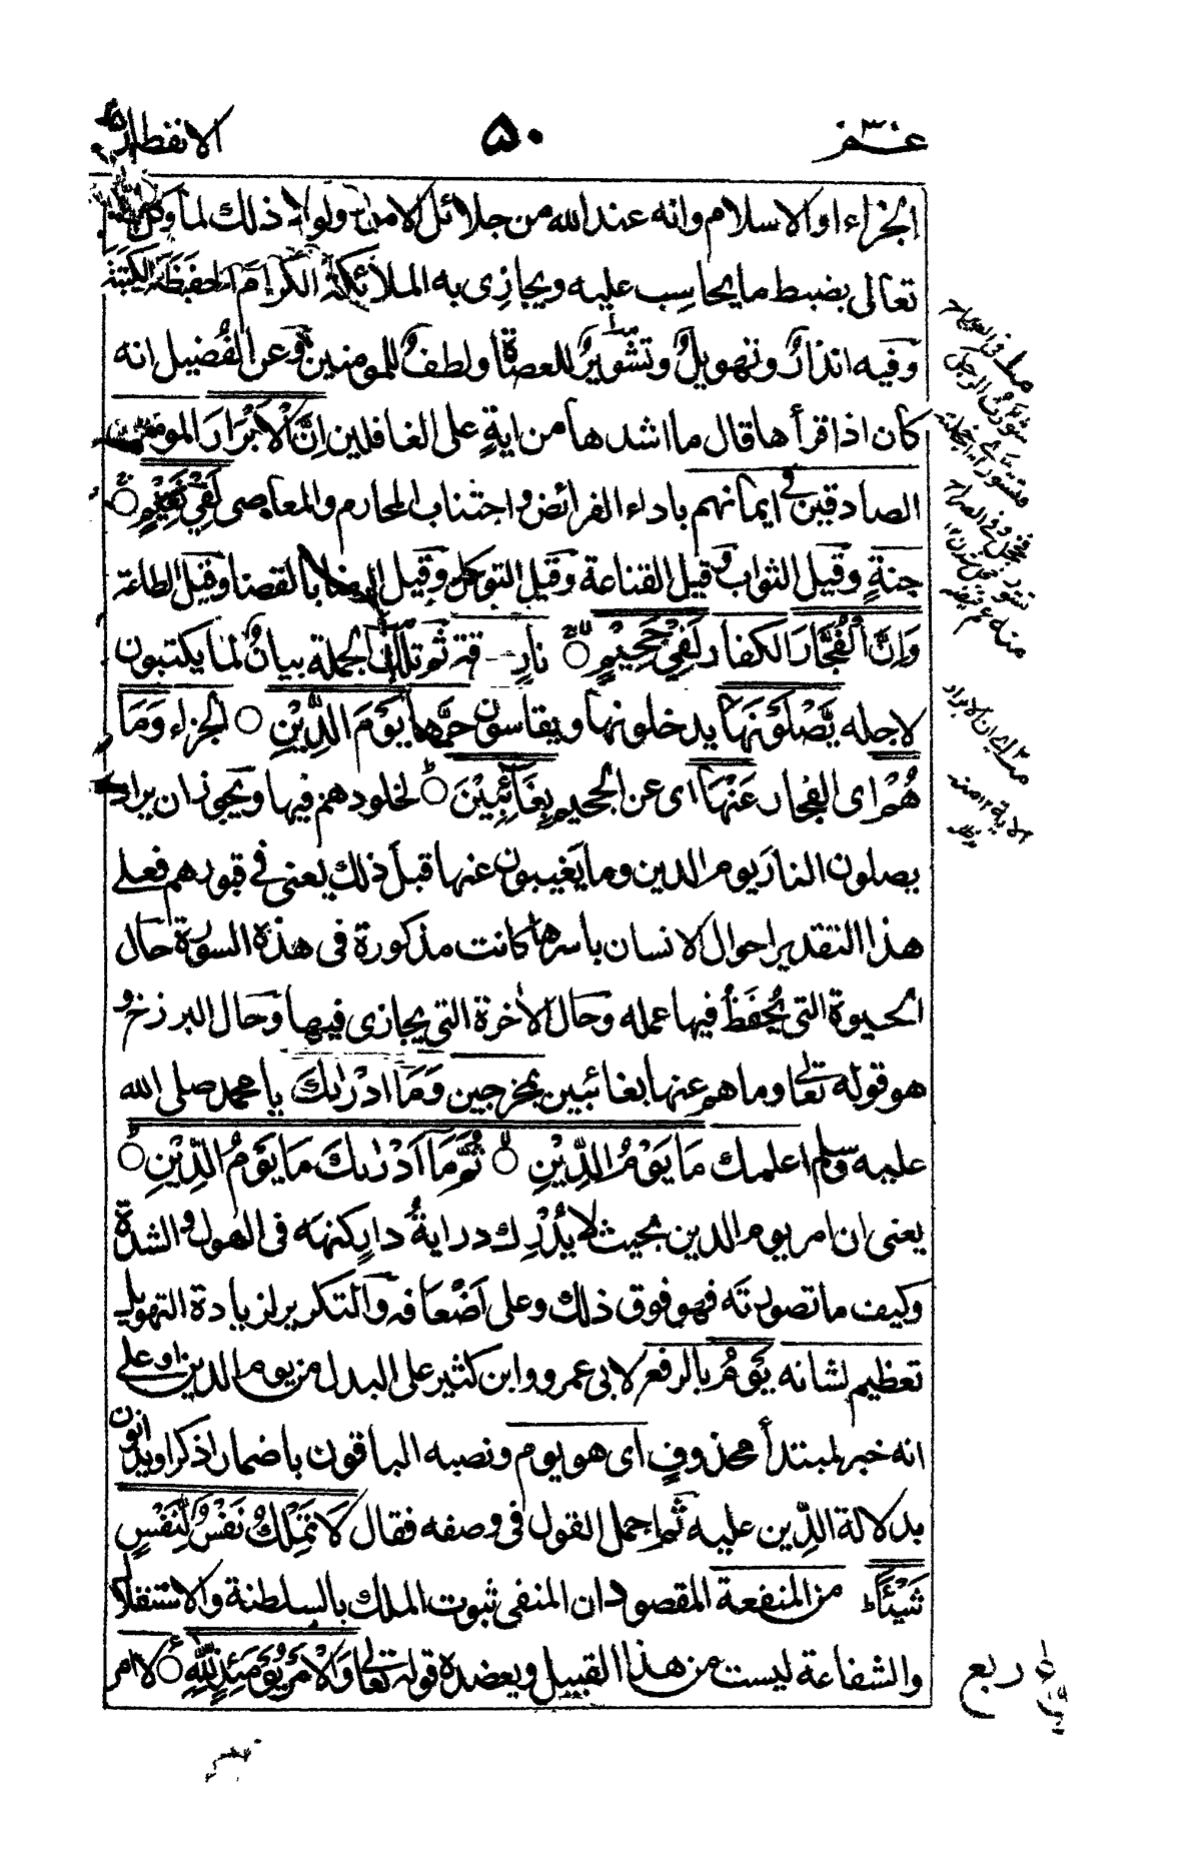 عم ٣٠
٥٠
الانفطار
الجزاء او الاسلام وانه عند الله من جلائل الامور ولولا ذلك لما وكل
تعالى بضبط ما يحاسب عليه ويجازى به الملائكة الكرام الحفظة الكتبة
وفيه انذارٌ وتهويلٌ وتشويرٌ للعصاة ولطفٌ للمومنين وعن الفُضيل انه
كان اذا قرأها قال ما اشدها من ايةٍ على الغافلين اِنَّ الْاَبْرَارَ المومنين
الصادقين فى ايمانهم باداء الفرائض واجتناب المحارم والمعاصى لَفِيْ نَعِيْمٍ ○
جنةٍ وقيل الثواب وقيل القناعة وقيل التوكل وقيل الرضا بالقضا وقيل الطاعة
وَاِنَّ الْفُجَّارَ الكفار لَفِيْ جَحِيْمٍ ○ نارٍ قة ثم تلك الجملة بيانٌ لما يكتبون
لاجله يَّصْلَوْنَهَا يدخلونها ويقاسون حرَّها يَوْمَ الدِّيْنِ ○ الجزاء وَمَا
هُمْ اى الفجار عَنْهَا اى عن الجحيم بِغَآئِبِيْنَ ○ لخلودهم فيها ويجوز ان يراد
يصلون النار يوم الدين وما يَغيبون عنها قبل ذلك يعنى فى قبورهم فعلى
هذا التقدير احوال الانسان باسرها كانت مذكورة فى هذه السورة حال
الحيوة التى يُحفَظُ فيها عمله وحال الأخرة التى يجازى فيها وحال البرزخ و
هو قوله تعالى وما هم عنها بغائبين بمخرجين وَمَآ اَدْرٰىكَ يا محمد صلى الله
عليه وسلم اعلمك مَا يَوْمُ الدِّيْنِ ○ ثُمَّ مَآ اَدْرٰىكَ مَا يَوْمُ الدِّيْنِ ○
يعنى ان امر يوم الدين بحيث لا يُدْرِك درايةُ دارٍ كنهَه فى الهول والشدة
وكيف ما تصورته فهو فوق ذلك وعلى اَضْعافه والتكرير لزيادة التهويل
تعظيم لشانه يَوْمُ بالرفع لابى عمرو وابن كثير على البدل من يوم الدين او على
انه خبر لمبتدأ محذوفٍ اى هو يوم ونصبه الباقون باضمار اذكر او يدانون
بدلالة الدِّين عليه ثم اجمل القول فى وصفه فقال لَا تَمْلِكُ نَفْسٌ لِّنَفْسٍ
شَيْئًا من المنفعة المقصود ان المنفى ثبوت الملك بالسلطنة والاستقلال
والشفاعة ليست من هذا القبيل ويعضده قوله تعالى وَالْاَمْرُ يَوْمَئِذٍ لِّلّٰهِ ○ لا امر
ربع